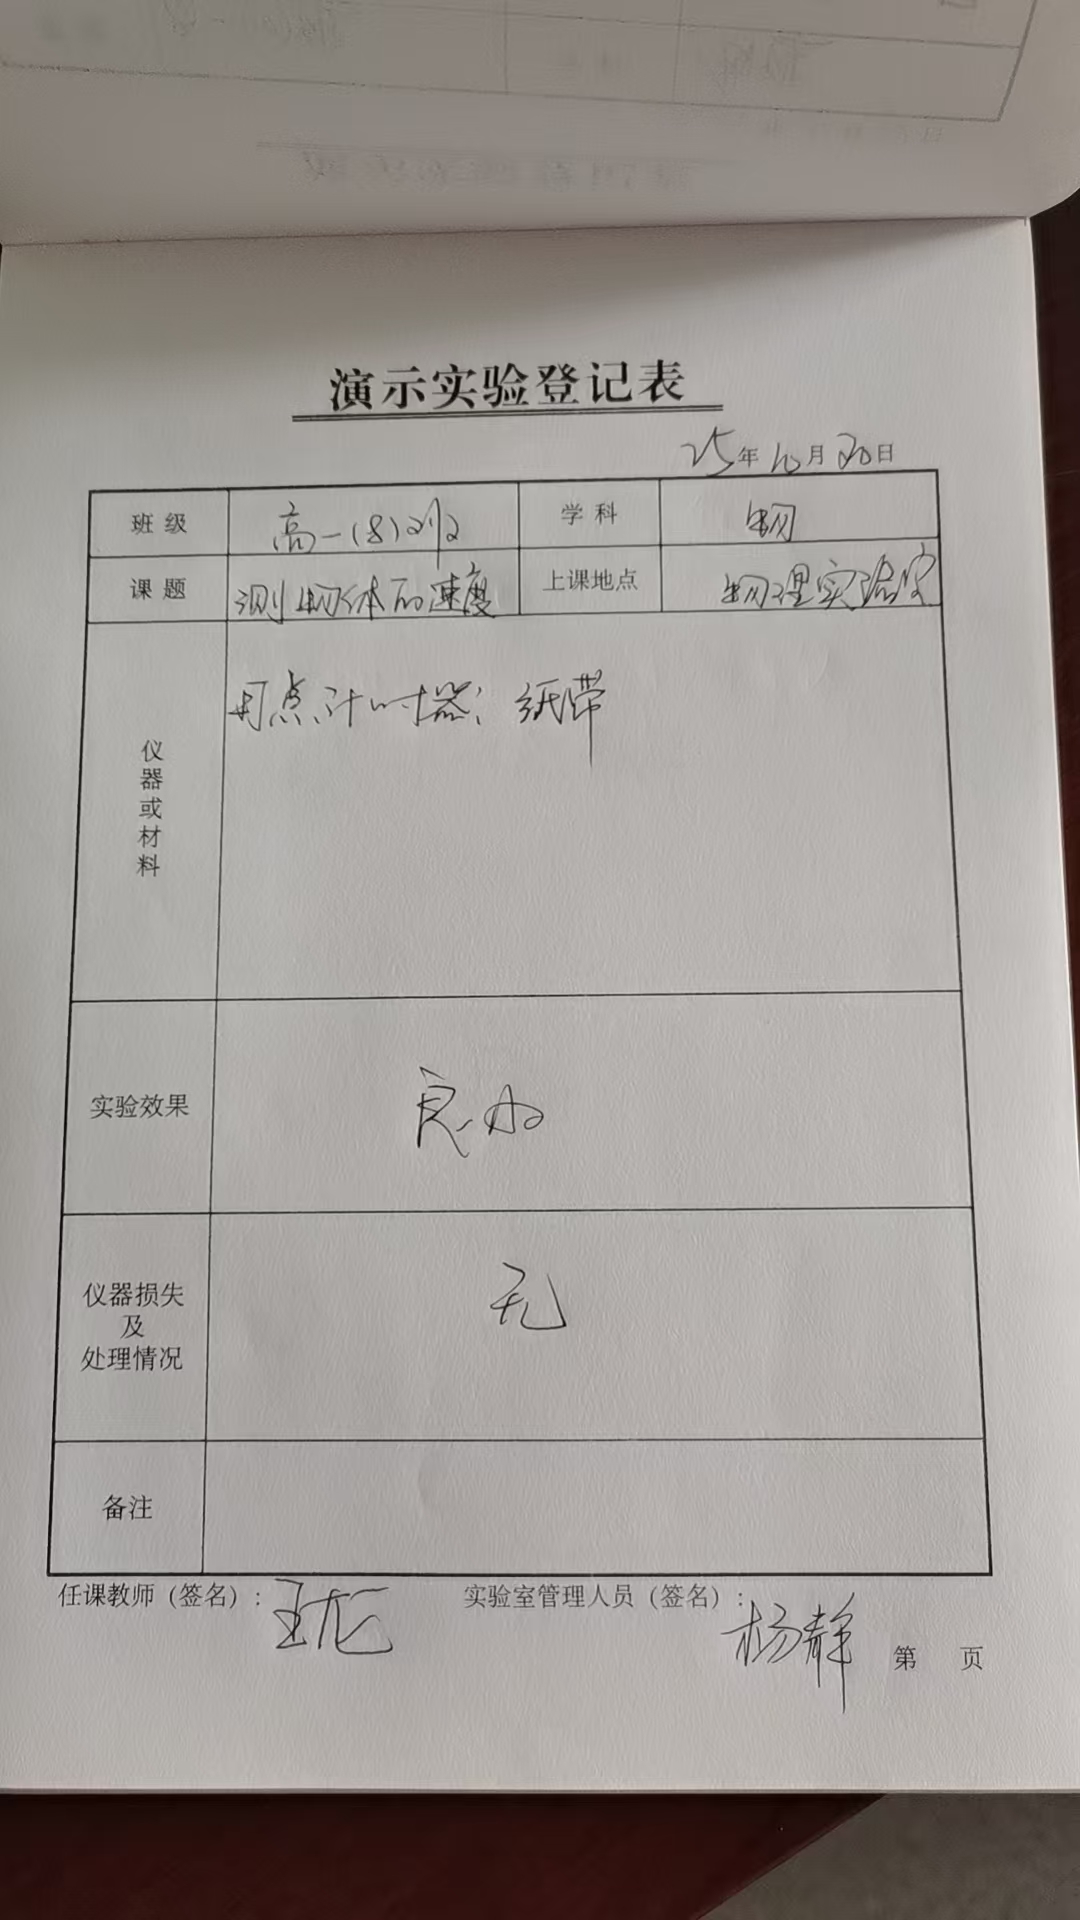 演示实验登记表
25年10月20日
班级 高一(8)班 学科 物
课题 测物体的速度 上课地点 物理实验室
仪器或材料 点计时器; 纸带
实验效果 良好
仪器损失
及
处理情况 无
备注
任课教师（签名）: 王龙 实验室管理人员（签名）: 杨静
第 页